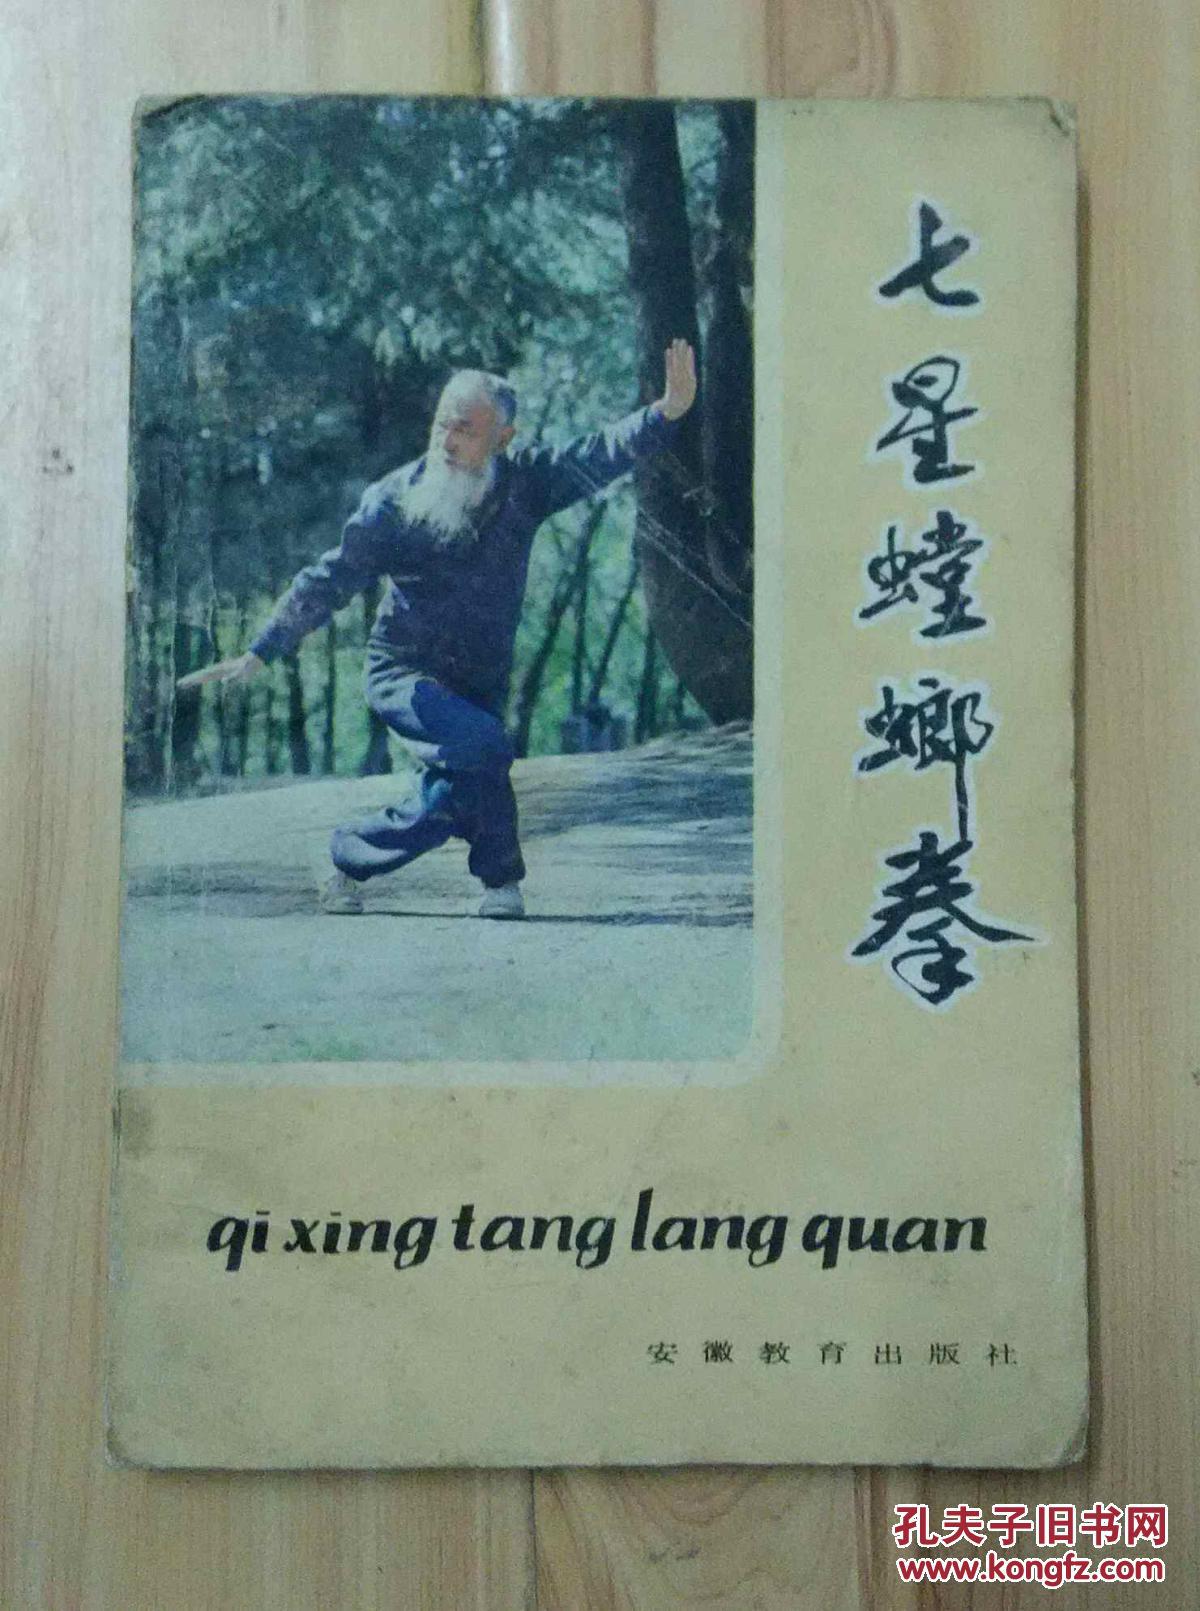 七星螳螂拳
qī xīng tang lang quan
安徽教育出版社
孔夫子旧书网
www.kongfz.com